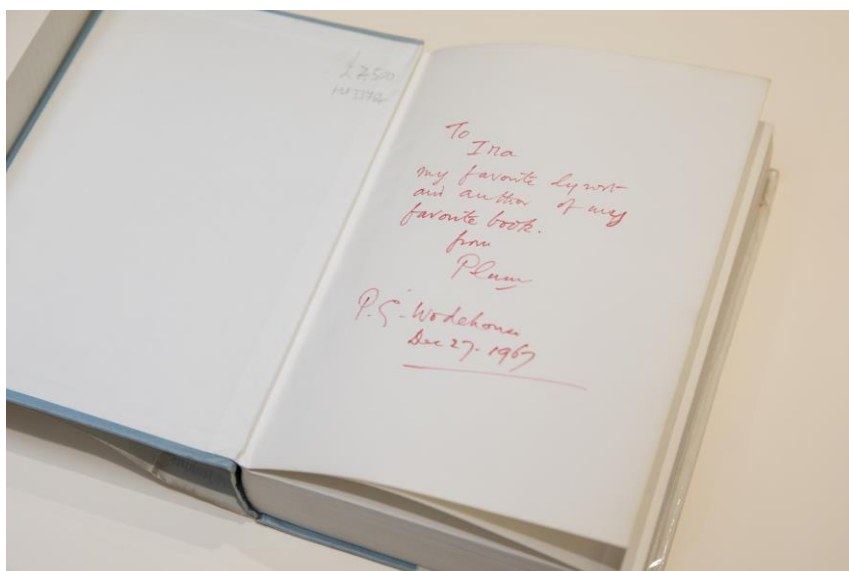 £7,500
To
Ira
my favorite lyrist
and author of my
favorite book.
from
Plum
P. G. Wodehouse
Dec 27. 1967